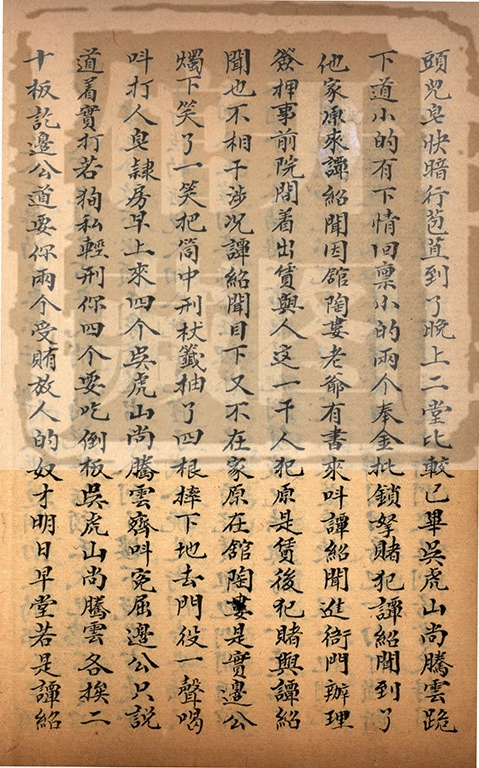 頭兒皂快暗行苞苴到了晚上二堂比較已畢吳虎山尚騰雲跪
下道小的有下情回禀小的兩个奉金批鎖拏賭犯譚紹聞到了
他家原來譚紹聞因舘陶婁老爺有書來呌譚紹聞進衙門辦理
簽押事前院閒着出賃與人這一干人犯原是賃後犯賭與譚紹
聞也不相干涉况譚紹聞目下又不在家原在舘陶婁是實邊公
燭下笑了一笑把筒中刑杖籤抽了四根摔下地去門役一聲喝
呌打人皂隷房早上來四个吳虎山尚騰雲齊呌冤屈邊公只說
道着實打若狥私輕刑你四个要吃倒板吳虎山尚騰雲各挨二
十板訖邊公道要你兩个受賄放人的奴才明日早堂若是譚紹